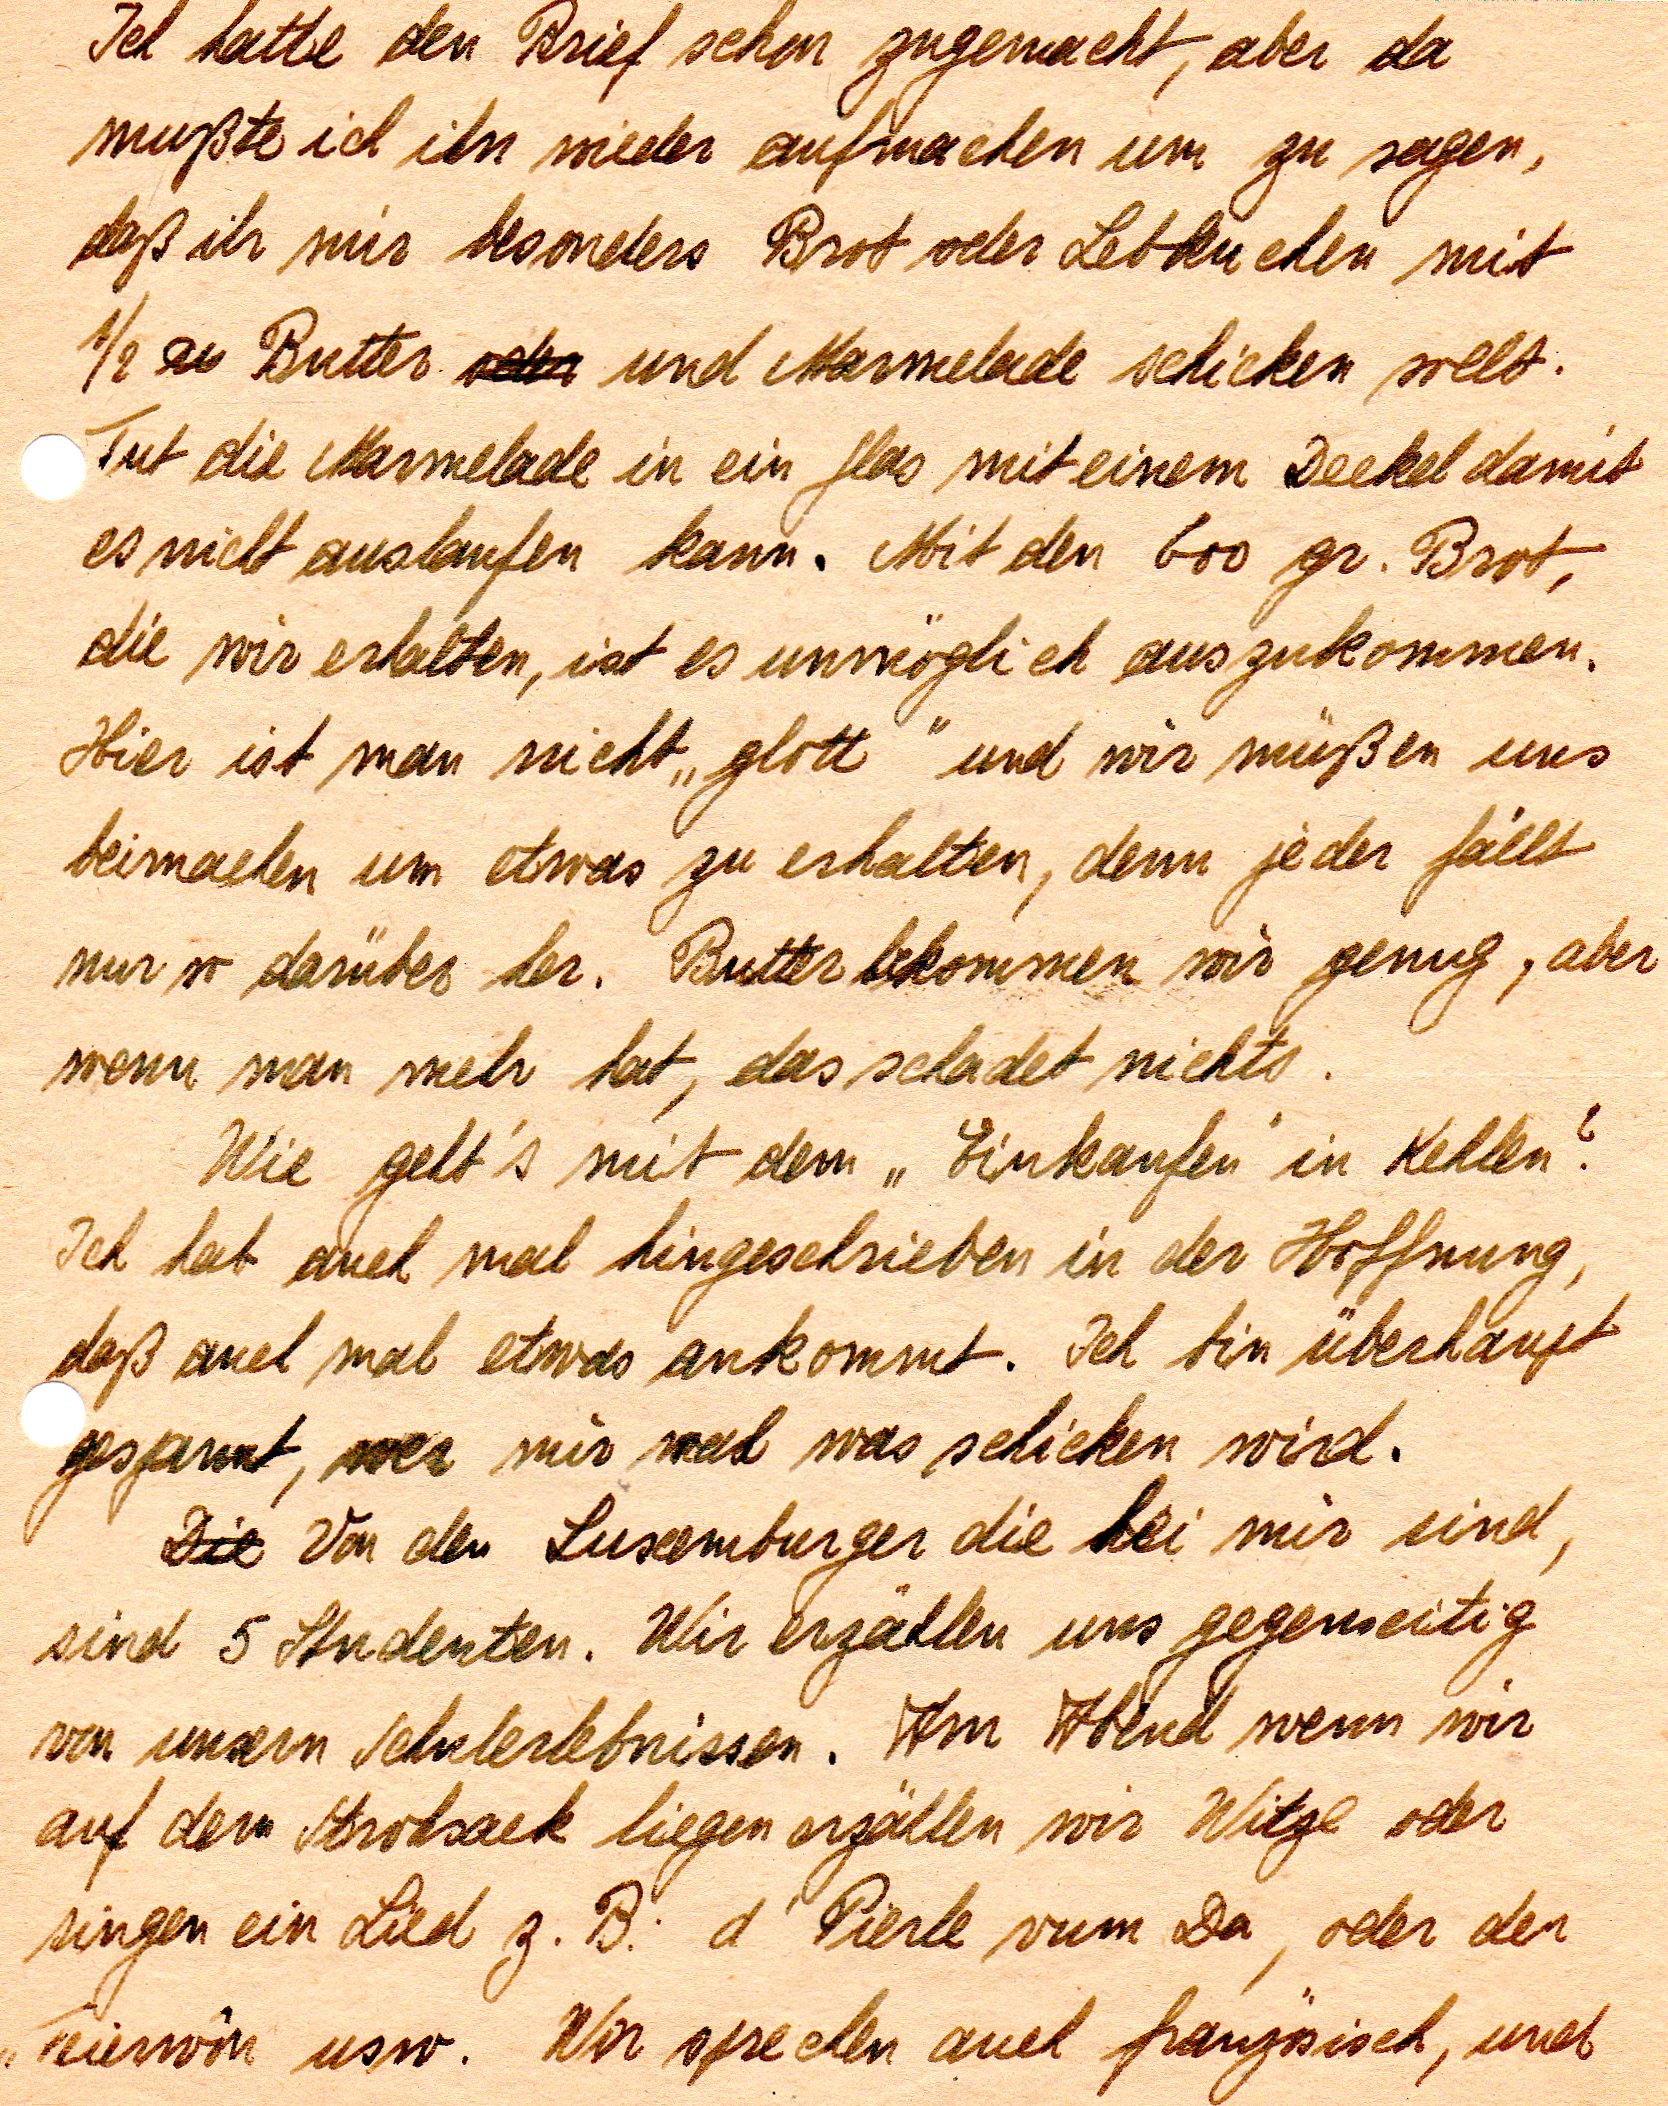 Ich hatte den Brief schon zugemacht, aber da
mußte ich ihn wieder aufmachen um zu sagen,
daß ihr mir besonders Brot oder Lebkuchen mit
1/2 Butter oder und Marmelade schicken sollt.
Tut die Marmelade in ein Glas mit einem Deckel damit
es nicht auslaufen kann. Mit den 600 gr. Brot,
die wir erhalten, ist es unmöglich auszukommen.
Hier ist man nicht „glott" und wir müßen uns
beimachen um etwas zu erhalten, denn jeder fällt
nur so darüber her. Butter bekommen wir genug, aber
wenn man mehr hat, das schadet nichts.
Wie geht's mit dem „Einkaufen" in Kehlen?
Ich hab auch mal hingeschrieben in der Hoffnung,
daß auch mal etwas ankommt. Ich bin überhaupt
gespannt, wer mir mal was schicken wird.
Die Von den Luxemburger die bei mir sind,
sind 5 Studenten. Wir erzählen uns gegenseitig
von unsern Schulerlebnissen. Am Abend wenn wir
auf dem Strohsack liegen erzählen wir Witze oder
singen ein Lied z. B. d' Pierle vum Da, oder der
„Feierwôn usw. Wir sprechen auch französisch, und